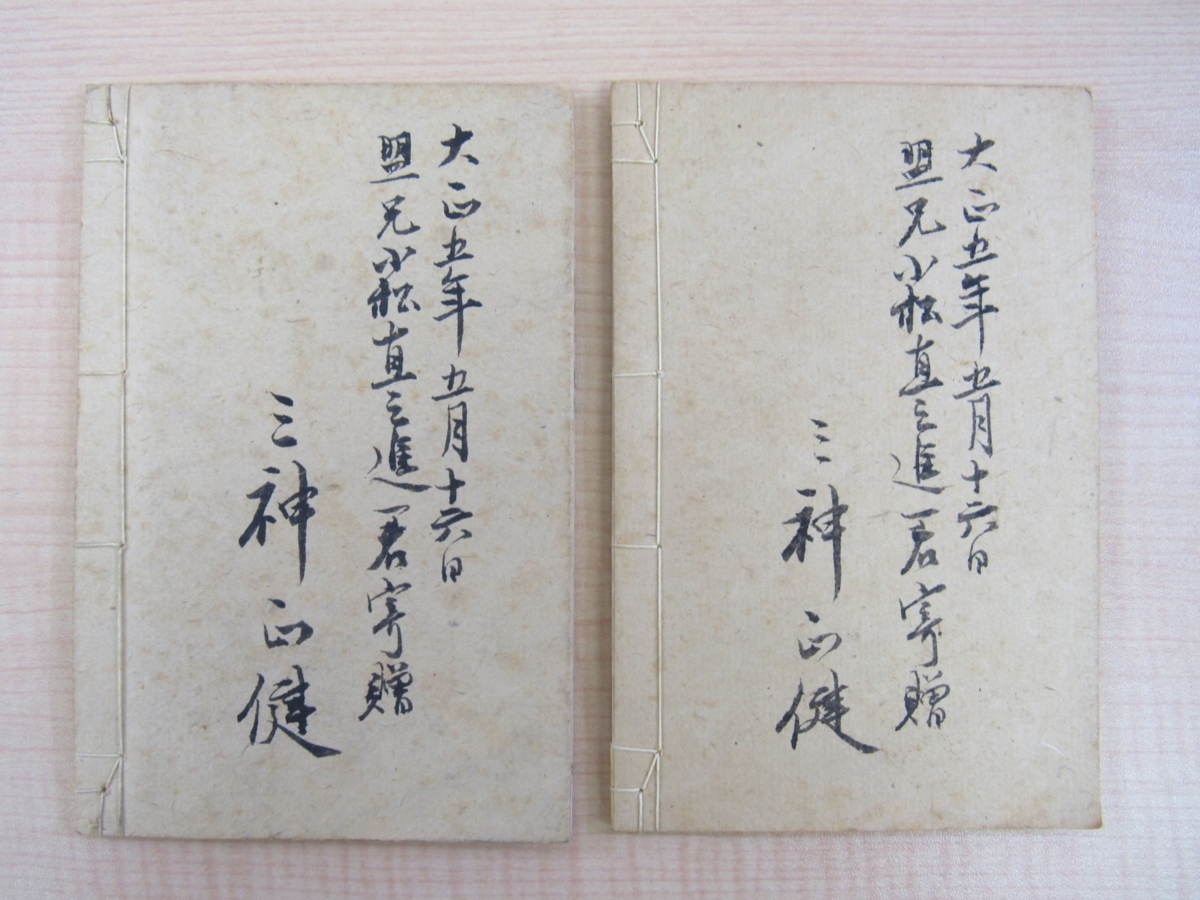 大正五年五月十六日
盟兄小松直之進君寄贈
三神正健
大正五年五月十六日
盟兄小松直之進君寄贈
三神正健